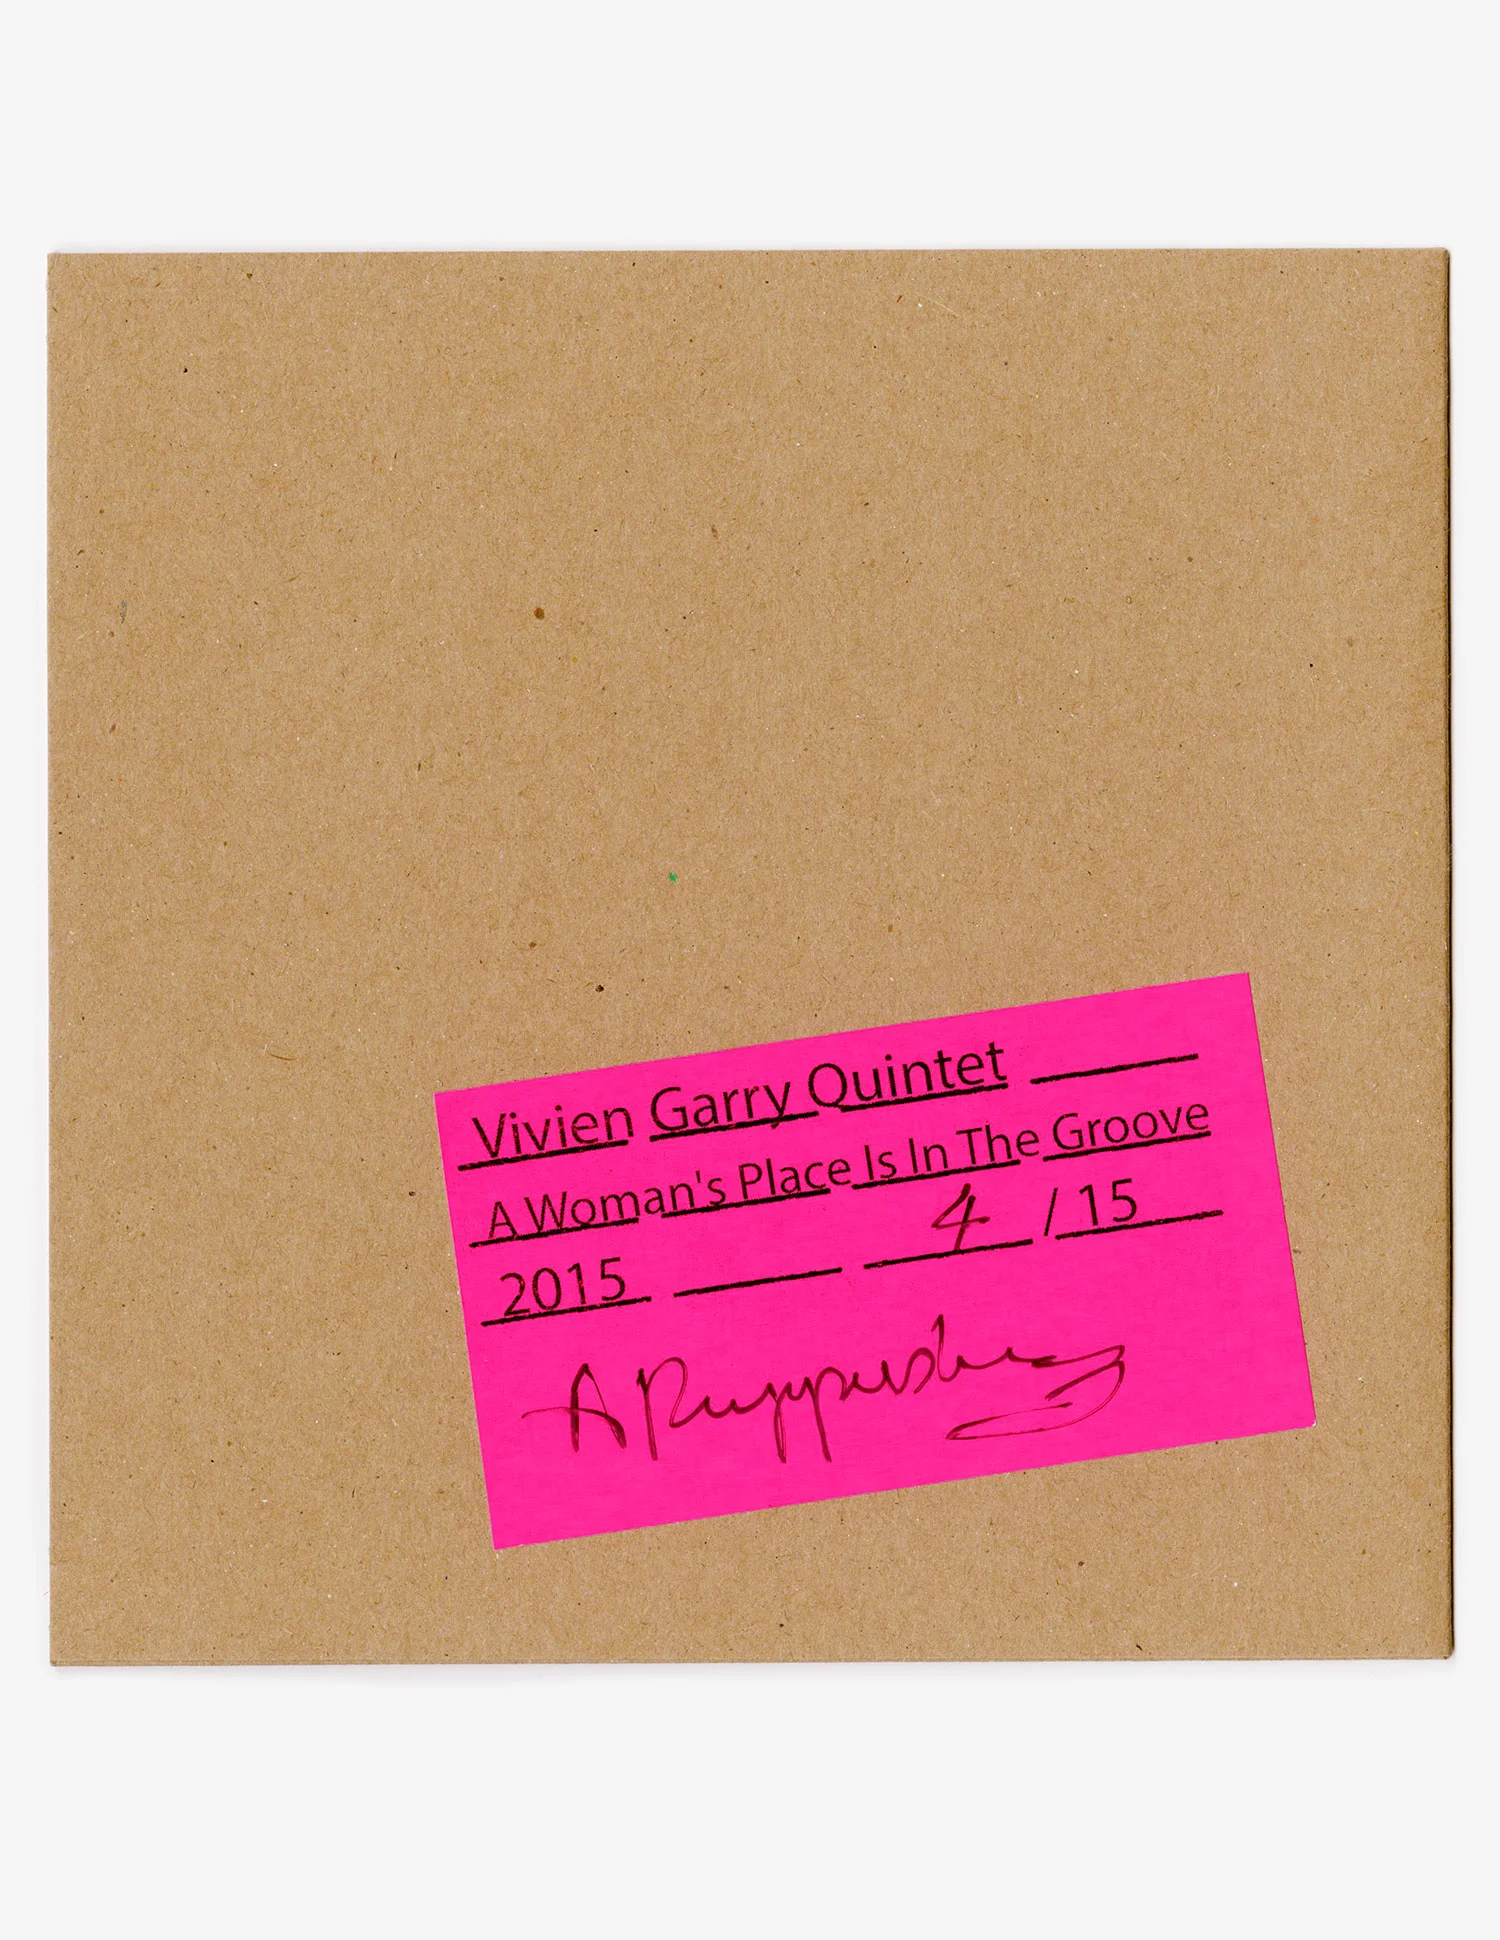 Vivien Garry Quintet
A Woman's Place Is In The Groove
2015 4 / 15
A Ruppersberg